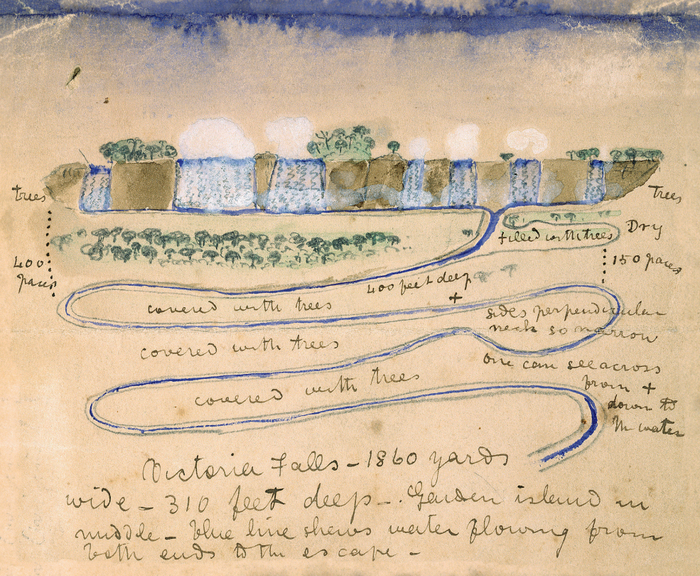 trees
trees
Dry
filled with trees
400
paces
150 paces
400 feet deep
+
covered with trees
sides perpendicular
neck so narrow
covered with trees
one can see across
from +
down to
the water
covered with trees
Victoria Falls - 1860 yards
wide - 310 feet deep - Garden island in
middle - blue line shews water flowing from
both ends to the escape -